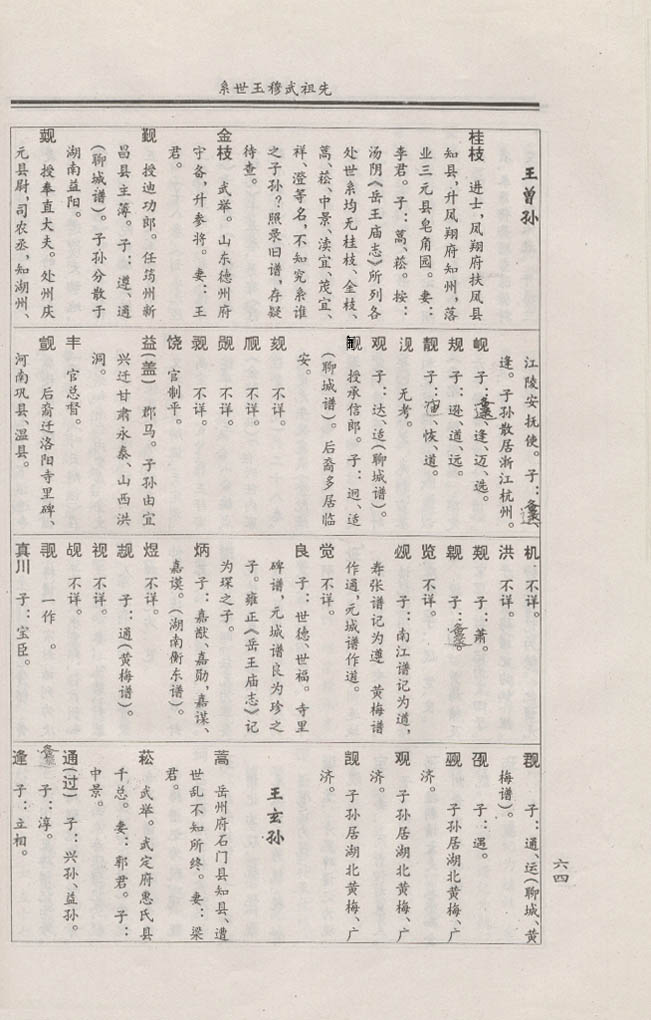 先祖武穆王世系
王曾孙
桂枝 进士,凤翔府扶风县
知县,升凤翔府知州,落
业三元县皂角园。妻:
李君。子:蒿、菘。按:
汤阴《岳王庙志》所列各
处世系均无桂枝、金枝、
蒿、菘、中景、渎宜、茂宜、
祥、澄等名,不知究系谁
之子孙?照录旧谱,存疑
待查。
金枝 武举。山东德州府
守备,升参将。妻:王
君。
觐 授迪功郎。任筠州新
昌县主薄。子:遵、通
(聊城谱)。子孙分散于
湖南益阳。
觌 授奉直大夫。处州庆
元县尉,司农丞,知湖州、
江陵安抚使。子:
逢。子孙散居浙江杭州。
岘 子:、逢、迈、选。
规 子:逊、道、远。
靓 子:、恢、道。
觅 无考。
观 子:达、适(聊城谱)。
授承信郎。子:迥、适
(聊城谱)。后裔多居临
安。
不详。
不详。
不详。
不详。
饶 官制平。
益(盖) 郡马。子孙由宜
兴迁甘肃永泰、山西洪
洞。
丰 官总督。
觊 后裔迁洛阳寺里碑、
河南巩县、温县。
机 不详。
洪 不详。
子:萧。
子:。
览 不详。
子:南江谱记为道,
寿张谱记为遵 黄梅谱
作通,元城谱作道。
觉 不详。
良 子:世德、世福。寺里
碑谱,元城谱良为珍之
子。雍正《岳王庙志》记
为琛之子。
炳 子:嘉猷、嘉勋,嘉谋、
嘉谟。(湖南衡东谱)。
煜 不详。
子:通(黄梅谱)。
视 不详。
觇 不详。
一作 。
真川 子:宝臣。
子:通、运(聊城、黄
梅谱)。
子:遇。
子孙居湖北黄梅、广
济。
观 子孙居湖北黄梅、广
济。
子孙居湖北黄梅、广
济。
王玄孙
蒿 岳州府石门县知县、遭
世乱不知所终。妻:梁
君。
菘 武举。武定府惠氏县
千总。妻:郭君。子:
中景。
通(过) 子:兴孙、益孙。
子:淳。
逢 子:立相。
六四